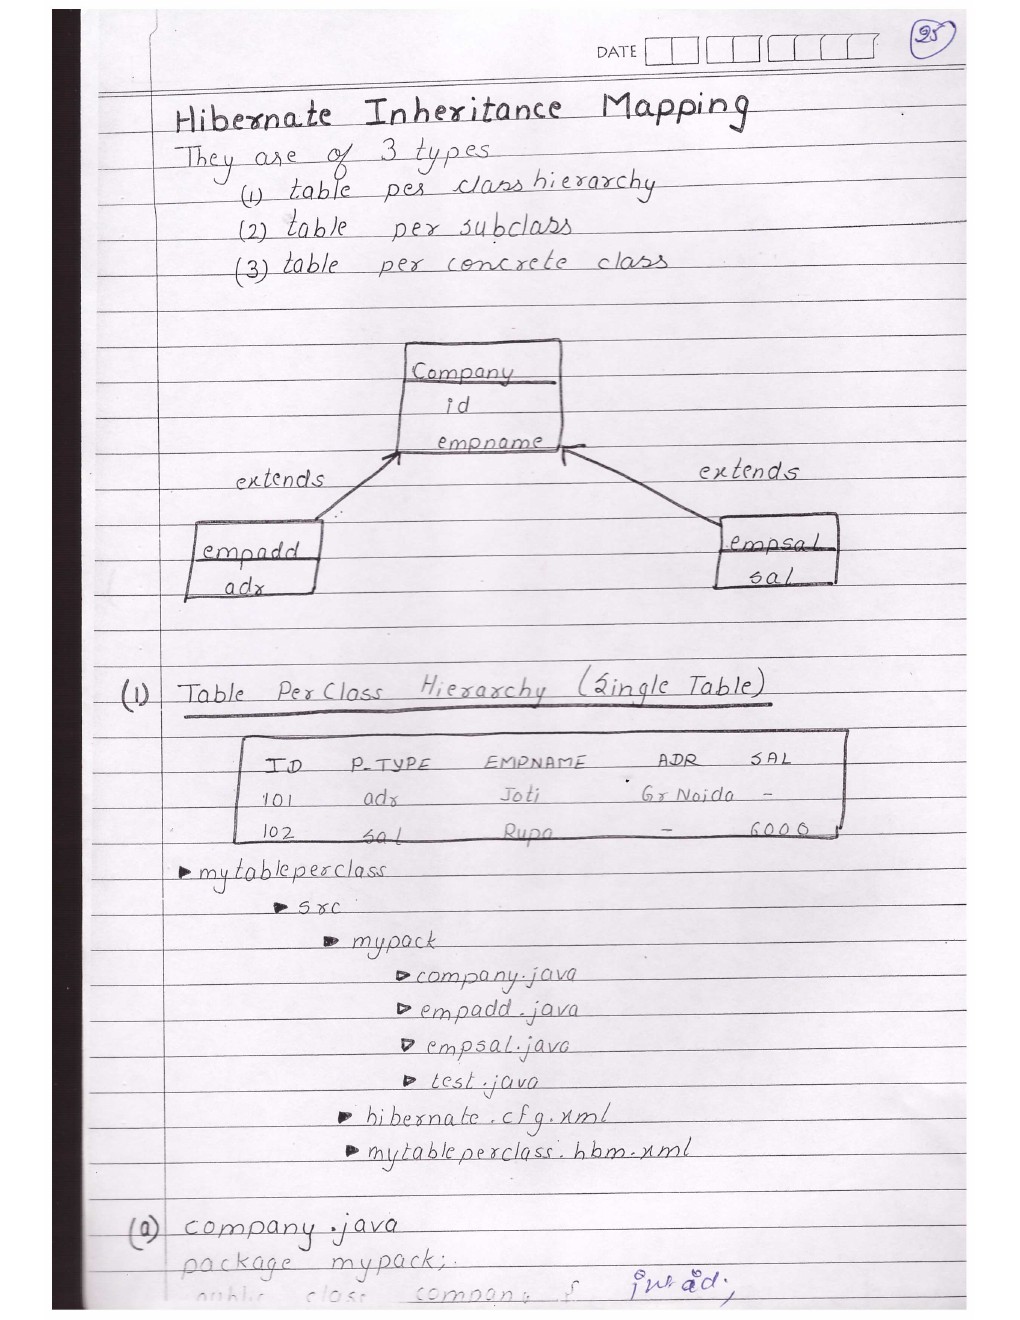 DATE
25
Hibernate Inheritance Mapping
They are of 3 types
(1) table per class hierarchy
(2) table per subclass
(3) table per concrete class
Company
id
empname
extends
extends
empadd
adr
empsal
sal
(1) Table Per Class Hierarchy (Single Table)
ID P_TYPE EMPNAME ADR SAL
101 adr Joti Gr Noida -
102 sal Rupa - 6000
mytableperclass
src
mypack
company.java
empadd.java
empsal.java
test.java
hibernate.cfg.xml
mytableperclass.hbm.xml
(a) company.java
package mypack;
public class company { int id;